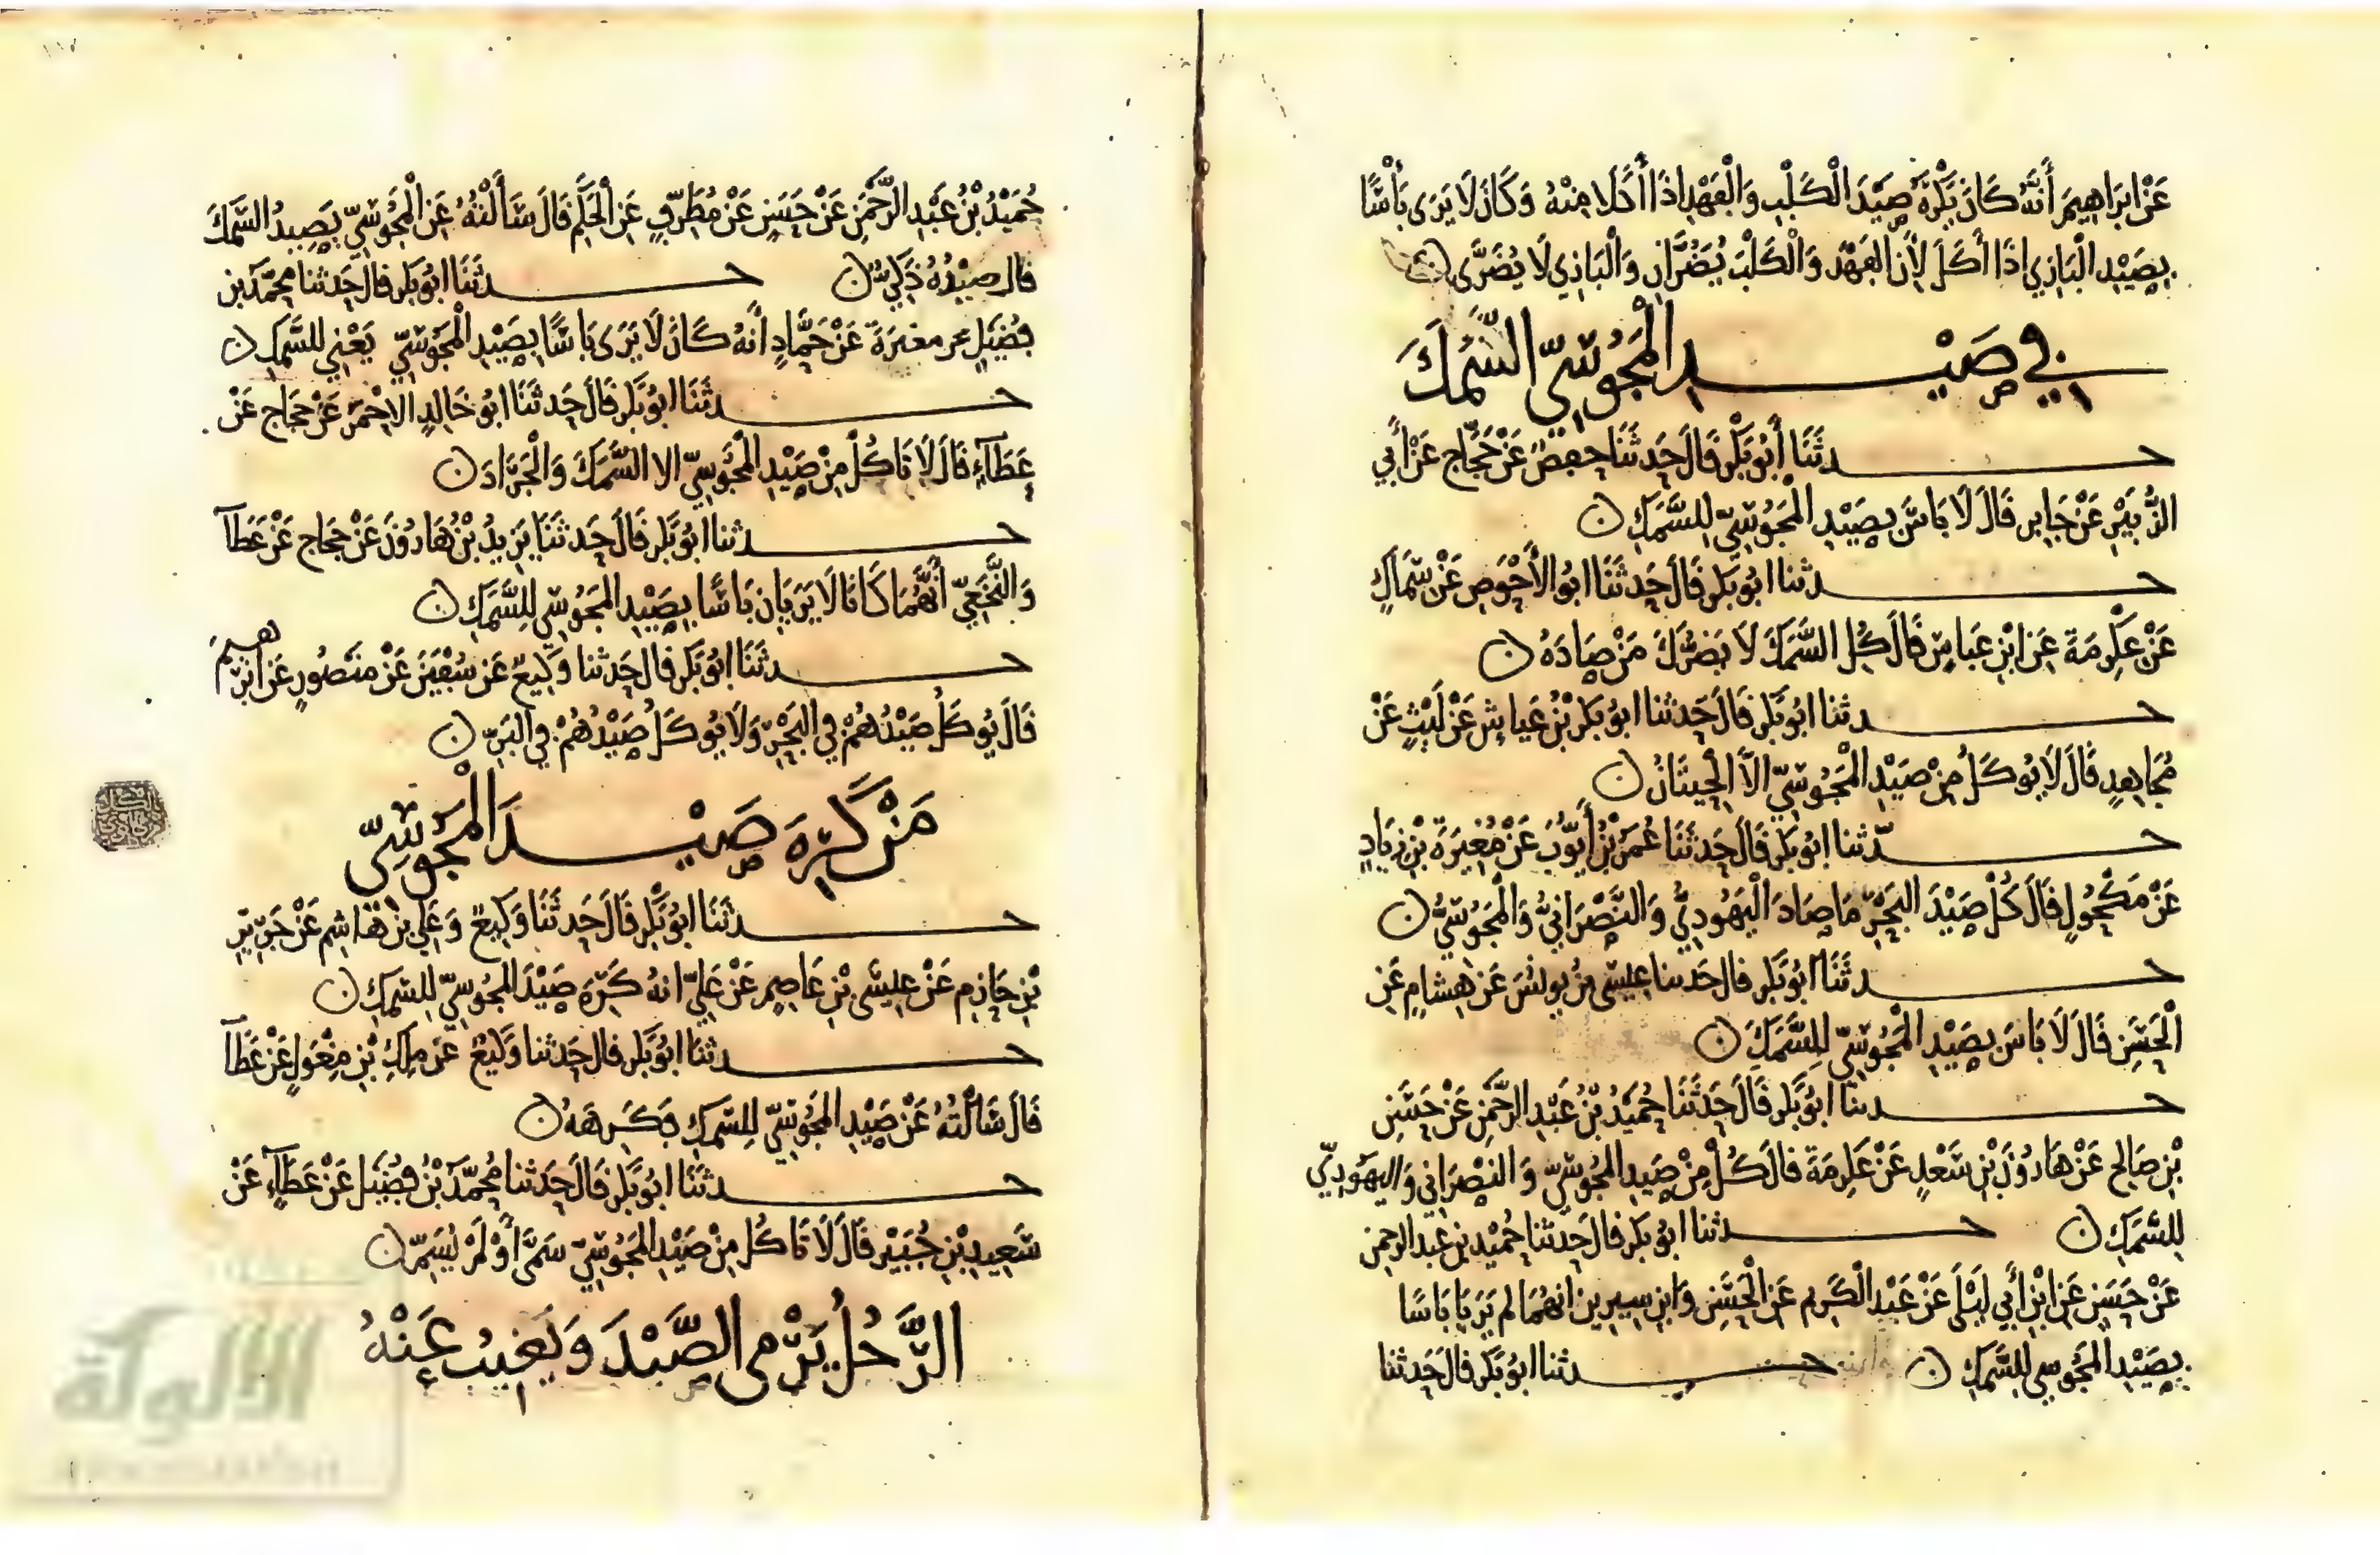 عَنْ ابرَاهِيمَ أَنَّهُ كَانَ يَكْرَهُ صَيْدَ الْكَلْبِ وَالْفَهْدِ اذَا أَكَلَا مِنْهُ وَكَانَ لَا يَرَى بَأْسًا
بِصَيْدِ الْبَازِي اذَا أَكَلَ لِأَنَّ الفَهْدَ وَالْكَلْبَ يُضَرَّانِ وَالْبَازِي لَا يُضَرَّى ن
في صَيْدِ الْمَجُوسِيِّ السَّمَكَ
حدثَنَا أَبُو بَكْرٍ قَالَ حَدثَنَا حفصٌ عَنْ حَجَّاج عَنْ أَبي
الزُّبَيْرِ عَنْ جَابِر قَالَ لَا بَاسَ بِصَيْدِ الْمَجُوسِيِّ لِلسَّمَكِ ن
حدثنا ابُو بَكر قَالَ حَدثَنَا ابوُ الأَحْوَصِ عَنْ سِمَاكٍ
عَنْ عكْرِمَةَ عَنِ ابْنِ عَبَاسٍ قَالَ كُلِ السَّمَكَ لَا يَضُرُّكَ مَنْ صَادَهُ ن
حدثنا ابُو بَكر قَالَ حَدثنا ابوُ بَكر بْنُ عَياشٍ عَنْ لَيْثٍ عَنْ
مُجَاهِدٍ قَالَ لَا يُوكَلُ مِنْ صَيْدِ الْمَجُوسِيِّ الاَّ الْحِيتَانُ ن
حدّثنا ابُو بَكر قَالَ حَدثَنَا عُمَرُ بْنُ أَيُّوبَ عَنْ مُغِيرَةَ بْنِ زِيَادٍ
عَنْ مَكْحُولٍ قَالَ كُلْ صَيْدَ البَحْرِ مَا صَادَ الْيَهُودِيُّ وَالنَّصْرَانِيُّ وَالْمَجُوسِيُّ ن
حدثَنَا ابُو بَكر قال حَدثنا عِيسَى بْنُ يونُسَ عَنْ هِشَامٍ عَنِ
الْحَسَنِ قَالَ لَا بَاسَ بِصَيْدِ الْمَجُوسِيِّ لِلسَّمَكِ ن
حدثنا ابُو بَكر قَالَ حَدثَنَا حُمَيْدُ بْنُ عَبْدِ الرَّحْمَنِ عَنْ حَسَنِ
بْنِ صَالِح عَنْ هَارُونَ بْنِ سَعْدٍ عَنْ عَكِرمَةَ قالَ كُلْ مِنْ صَيْدِ المَجُوسِيِّ وَالنَصْرَانِي وَاليَهُودِيِّ
لِلسَّمَكِ ن حدثنا ابُو بَكر قال حَدثنا حُمَيْد بن عَبد الرحمن
عَنْ حَسَنٍ عَنِ ابْنِ أَبِي لَيْلَى عَنْ عَبْدِ الْكَرِيم عَنِ الْحَسَنِ وَابن سِيرِين انهُمَا لم يَرَيَا بَاسًا
بِصَيْدِ المَجُوسي لِلسَّمَكِ ن حدثنا ابُو بَكر قالَ حَدثنا
حُمَيْدُ بْنُ عَبْدِ الرَّحْمَنِ عَنْ حَسَنٍ عَنْ مُطَرِّفٍ عَنِ الْحَكَمِ قَالَ سَأَلْتُهُ عَنِ الْمَجُوسِيِّ يَصِيدُ السَّمَكَ
قال صَيْدُهُ ذَكِيٌّ ن حدثَنَا ابُو بَكر قالَ حَدثنا محمّد بن
فُضَيْلٍ عن مغيرَةَ عَنْ حَمَّادٍ أَنهُ كَانَ لَا يَرَى بَاسًا بِصَيْدِ الْمَجُوسِيِّ يَعْنِي للسَّمَكِ ن
حدثَنَا ابُو بَكر قَالَ حَدثَنَا ابُو خَالِدٍ الاحْمَرُ عَنْ حجاج عَنْ
عَطَآءٍ قَالَ لَا تَاكُلْ مِنْ صَيْدِ المَجُوسِيِّ الا السَّمَكَ وَالْجَرَادَ ن
حدثنا ابُو بَكر قَالَ حَدثَنَا يَزِيدُ بْنُ هَارُونَ عَنْ حَجَاج عَنْ عَطَآ
وَالنَّخَعِيِّ أَنَّهُمَا كَانَا لَا يَرَيَانِ بَاسًا بِصَيْدِ المَجُوسِي لِلسَّمَكِ ن
حدثَنَا ابُو بَكر قالَ حَدثنا وَكِيعٌ عَن سُفْيَنَ عَنْ منصُورٍ عَن ابرهيمَ
قَالَ يُوكَلُ صَيْدُهُمْ في البَحْرِ وَلَا يُوكَلُ صَيْدُهُمْ في البَرِّ ن
مَنْ كَرِهَ صَيْدَ الْمَجُوسِيِّ
حدثَنَا ابُو بَكر قَالَ حَدثَنَا وَكِيعٌ وَعَلِي بنُ هَاشِمٍ عَنْ جَرِيرِ
بْنِ حَازِمٍ عَنْ عِيسَى بْنِ عَاصِمٍ عَنْ عَلِيٍّ انهُ كَرِهَ صَيْدَ المَجُوسِيِّ لِلسَّمَكِ ن
حدثَنَا ابُو بَكر قال حَدثنا وَكِيعٌ عَنْ مٰلِكِ بْنِ مِغْوَلٍ عَنْ عَطَآ
قَالَ سَأَلْتُهُ عَنْ صَيْدِ المَجُوسِيِّ لِلسَّمَكِ فَكَرِهَهُ ن
حدثَنَا ابُو بَكر قَالَ حَدثنا مُحمَّدُ بْنُ فُضَيْل عَنْ عَطَآءٍ عَنْ
سَعِيدِ بْنِ جُبَيْر قَالَ لَا تَاكُلْ مِنْ صَيْدِ المَجُوسِيِّ سَمَّى أَوْ لَمْ يُسَمِّ ن
الرَّجُلُ يَرْمي الصَّيْدَ وَيَغِيبُ عَنْهُ
الألوكة